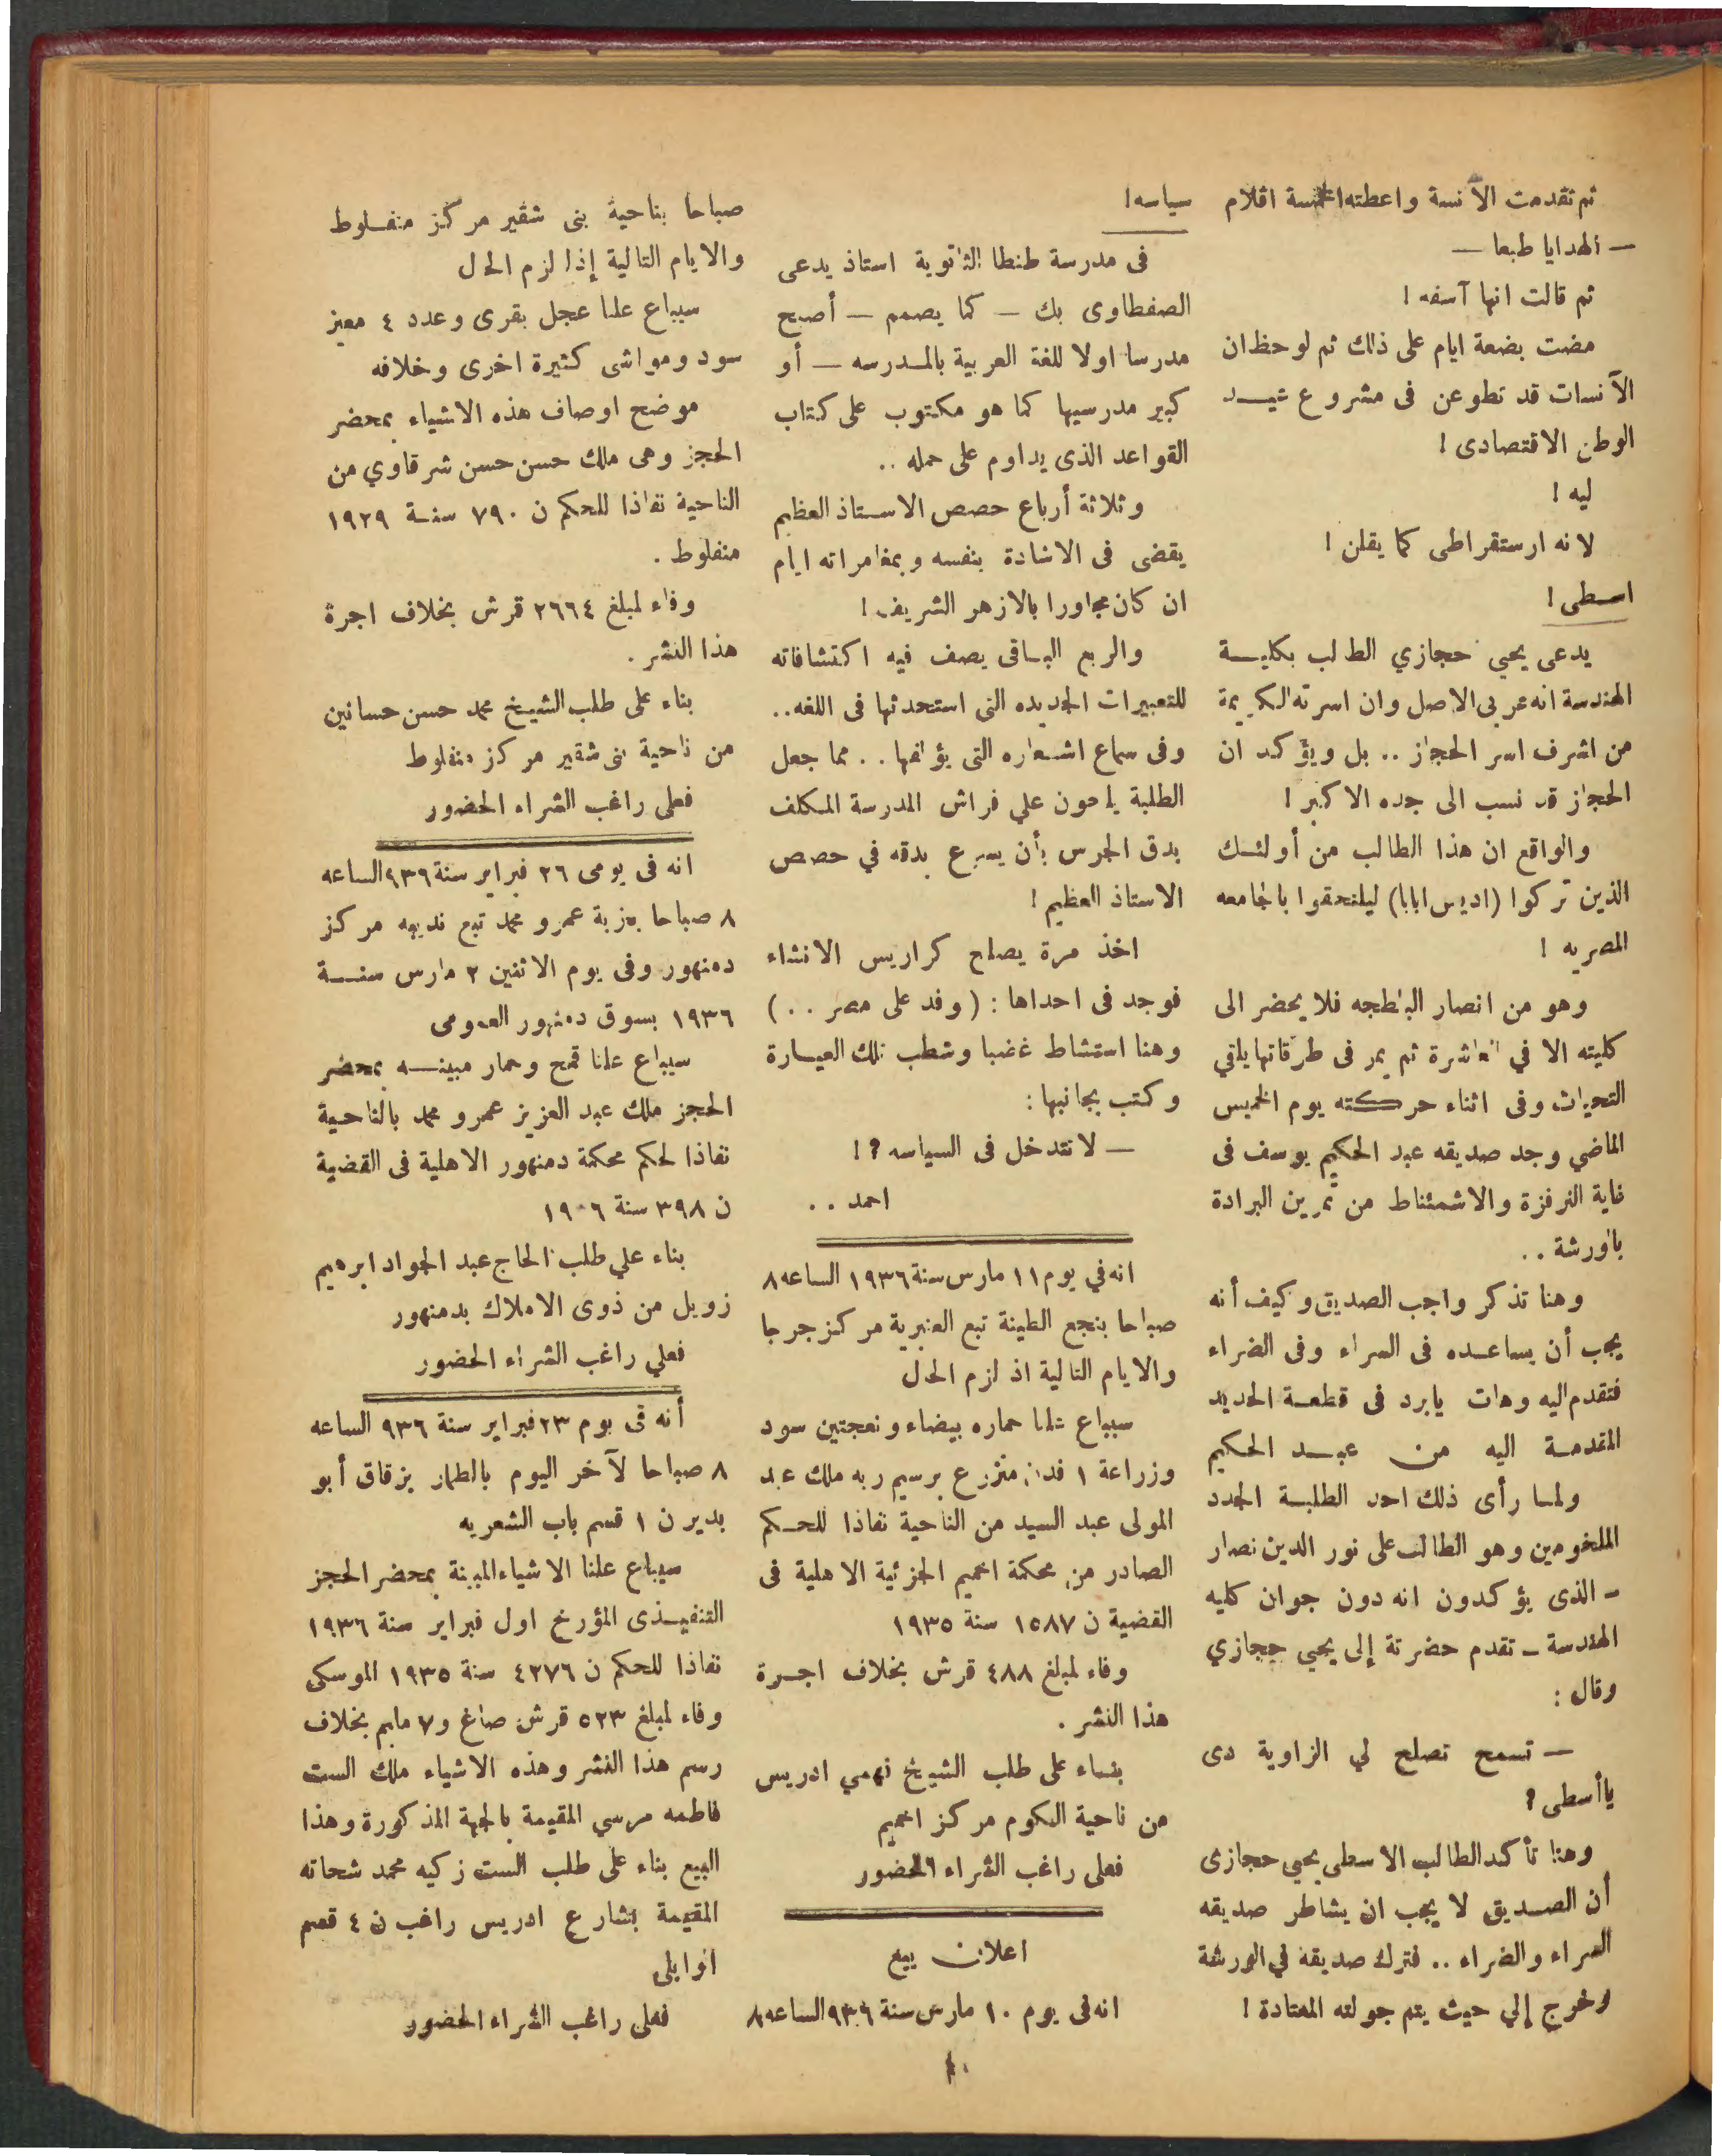 ثم تقدمت الآنسة واعطتها خمسة اقلام
— الهدايا طبعا —
ثم قالت انها آسفه !
مضت بضعة ايام على ذلك ثم لوحظ ان
الآنسات قد تطوعن فى مشروع عيد
الوطن الاقتصادى !
ليه !
لانه ارستقراطى كما يقلن !
اسطى !
يدعى يحي حجازي الطالب بكلية
الهندسة انه عربى الاصل وان اسرته الكريمة
من اشرف اسر الحجاز .. بل ويؤكد ان
الحجاز قد نسب الى جده الاكبر !
والواقع ان هذا الطالب من أولئك
الذين تركوا (اديس ابابا) ليلتحقوا بالجامعه
المصريه !
وهو من انصار البلطجه فلا يحضر الى
كليته الا في العاشرة ثم يمر فى طرقاتها يلقي
التحيات وفى اثناء حركته يوم الخميس
الماضي وجد صديقه عبد الحكيم يوسف فى
غاية النرفزة والاشمئناط من تمرين البرادة
بالورشة ..
وهنا تذكر واجب الصديق وكيف أنه
يجب أن يساعده فى السراء وفى الضراء
فتقدم اليه وهات يابرد فى قطعة الحديد
المقدمة اليه من عبد الحكيم
ولما رأى ذلك احد الطلبة الجدد
الملخومين وهو الطالب على نور الدين نصار
- الذى يؤكدون انه دون جوان كليه
الهندسة - تقدم حضرتة إلى يحيي حجازي
وقال :
— تسمح تصلح لي الزاوية دى
ياأسطى ؟
وهنا تأكد الطالب الاسطى يحيى حجازى
أن الصديق لا يجب ان يشاطر صديقه
السراء والضراء .. فترك صديقه في الورشة
وخرج إلي حيث يتم جولته المعتادة !
سياسه !
فى مدرسة طنطا الثانوية استاذ يدعى
الصفطاوى بك — كما يصمم — أصبح
مدرسا اولا للغة العربية بالمدرسه — أو
كبير مدرسيها كما هو مكتوب على كتاب
القواعد الذى يداوم على حمله ..
وثلاثة أرباع حصص الاستاذ العظيم
يقضى فى الاشادة بنفسه وبمغامراته ايام
ان كان مجاورا بالازهر الشريف !
والربع الباقى يصف فيه اكتشافاته
للتعبيرات الجديده التى استحدثها فى اللغه ..
وفى سماع اشعاره التى يؤلفها .. مما جعل
الطلبة يلحون علي فراش المدرسة المكلف
بدق الجرس بأن يسرع بدقه في حصص
الاستاذ العظيم !
اخذ مرة يصلح كراريس الانشاء
فوجد فى احداها : (وفد على مصر ..)
وهنا استشاط غضبا وشطب تلك العبارة
وكتب بجانبها :
— لا نتدخل فى السياسه ؟ !
احمد ..
انه في يوم ١١ مارس سنة ١٩٣٦ الساعه ٨
صباحا بنجع الطينة تبع العنبرية مركز جرجا
والايام التالية اذ لزم الحال
سيباع علنا حماره بيضاء ونعجتين سود
وزراعة ١ فدان منزرع برسيم ربه ملك عبد
المولى عبد السيد من الناحية نفاذا للحكم
الصادر من محكمة اخميم الجزئية الاهلية فى
القضية ن ١٥٨٧ سنة ١٩٣٥
وفاء لمبلغ ٤٨٨ قرش بخلاف اجرة
هذا النشر .
بناء على طلب الشيخ فهمي ادريس
من ناحية الكوم مركز اخميم
فعلى راغب الشراء الحضور
اعلان بيع
انه فى يوم ١٠ مارس سنة ٩٣٦ الساعه ٨
صباحا بناحية بنى شقير مركز منفلوط
والايام التالية إذا لزم الحال
سيباع علنا عجل بقرى وعدد ٤ معيز
سود ومواشى كثيرة اخرى وخلافه
موضح اوصاف هذه الاشياء بمحضر
الحجز وهى ملك حسن حسن شرقاوي من
الناحية نفاذا للحكم ن ٧٩٠ سنة ١٩٢٩
منفلوط .
وفاء لمبلغ ٢٦٦٤ قرش بخلاف اجرة
هذا النشر .
بناء على طلب الشيخ محمد حسن حسانين
من ناحية بنى شقير مركز منفلوط
فعلى راغب الشراء الحضور
انه فى يومى ٢٦ فبراير سنة ٩٣٦ الساعه
٨ صباحا بعزبة عمرو محمد تبع نديبه مركز
دمنهور وفى يوم الاثنين ٢ مارس سنة
١٩٣٦ بسوق دمنهور العمومى
سيباع علنا قمح وحمار مبينه بمحضر
الحجز ملك عبد العزيز عمرو محمد بالناحية
نفاذا لحكم محكمة دمنهور الاهلية فى القضية
ن ٣٩٨ سنة
بناء علي طلب الحاج عبد الجواد ابرهيم
زويل من ذوى الاملاك بدمنهور
فعلي راغب الشراء الحضور
أنه فى يوم ٢٣ فبراير سنة ٩٣٦ الساعه
٨ صباحا لآخر اليوم بالطمار بزقاق أبو
بدير ن ١ قسم باب الشعريه
سيباع علنا الاشياء المبينة بمحضر الحجز
التنفيذى المؤرخ اول فبراير سنة ١٩٣٦
نفاذا للحكم ن ٤٢٧٦ سنة ١٩٣٥ الموسكى
وفاء لمبلغ ٥٢٣ قرش صاغ و٧ مليم بخلاف
رسم هذا النشر وهذه الاشياء ملك الست
فاطمه مرسي المقيمة بالجهة المذكورة وهذا
البيع بناء على طلب الست زكيه محمد شحاته
المقيمة بشارع ادريس راغب ن ٤ قسم
الوايلى
فعلى راغب الشراء الحضور
٤٠